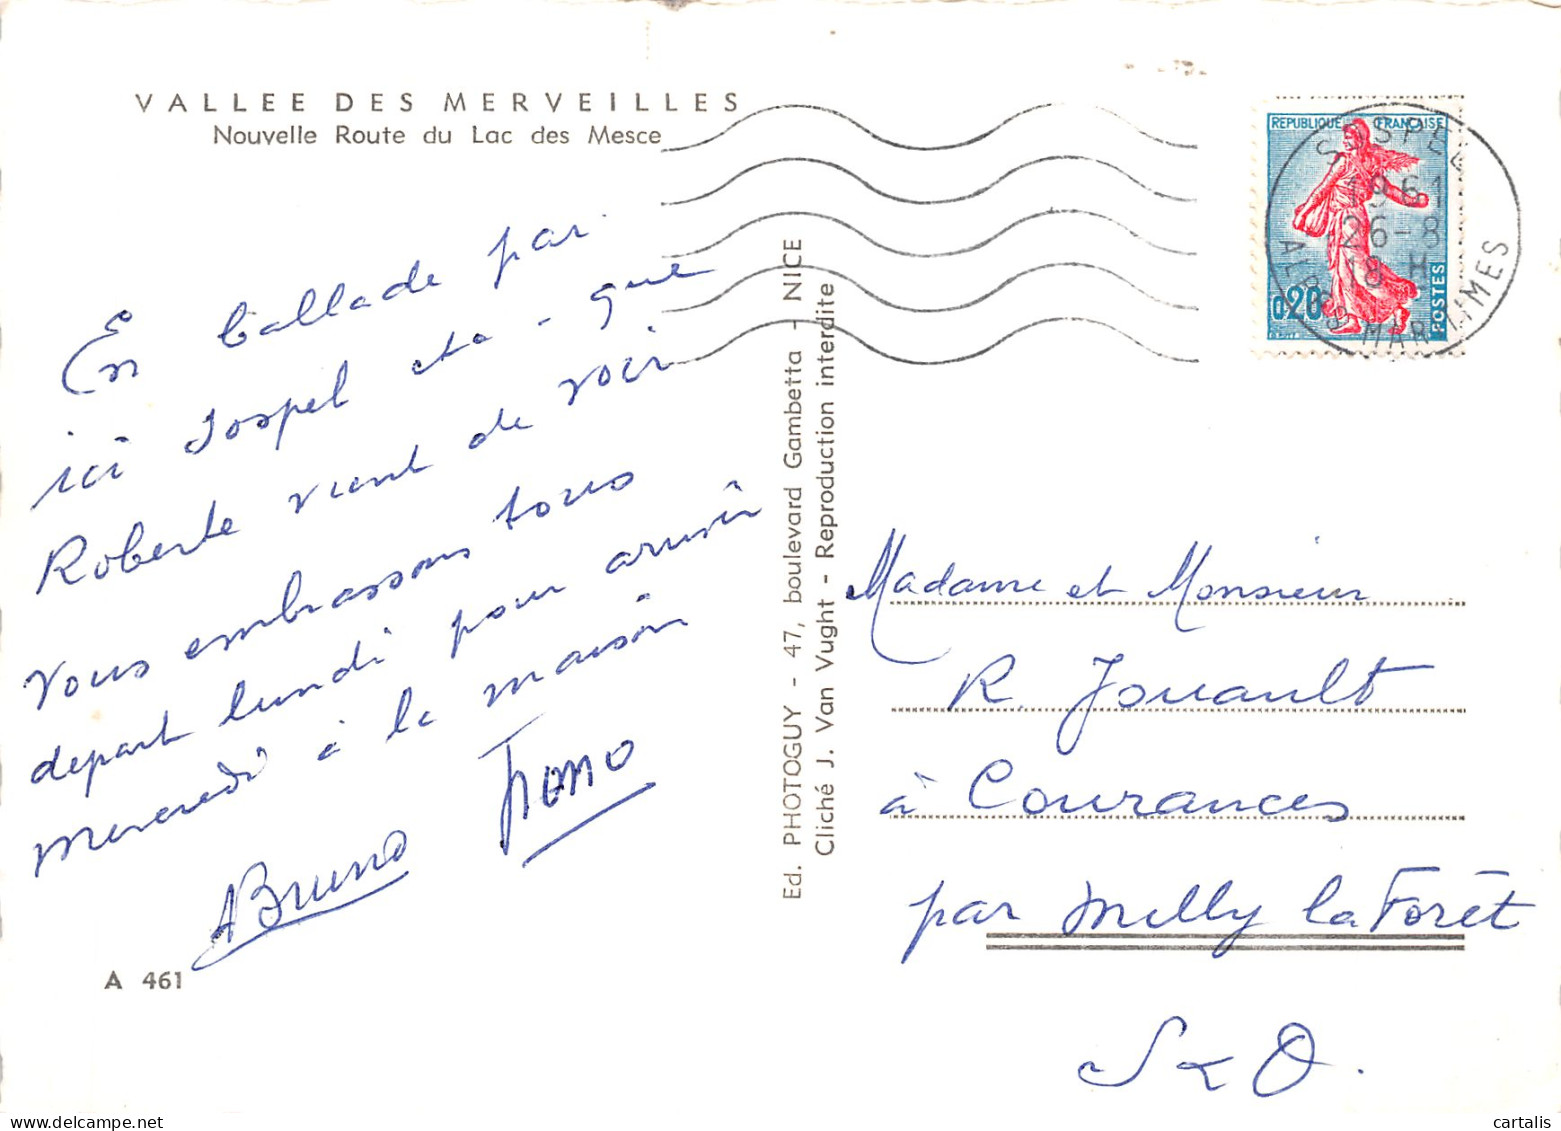 VALLEE DES MERVEILLES
Nouvelle Route du Lac des Mesce
En ballade par
ici Sospel etc - que
Roberte vient de voir
Vous embrassons tous
depart lundi pour arrivée
mercredi à la maison
Bruno
A 461
Ed. PHOTOGUY - 47, boulevard Gambetta - NICE
Cliché J. Van Vught - Reproduction interdite
REPUBLIQUE FRANÇAISE
0,20
POSTES
SOSPEL
1961
26-8
18 H
ALPES MARITIMES
Madame et Monsieur
R. Jouault
à Courances
par Milly la Forêt
S & O.
cartalis